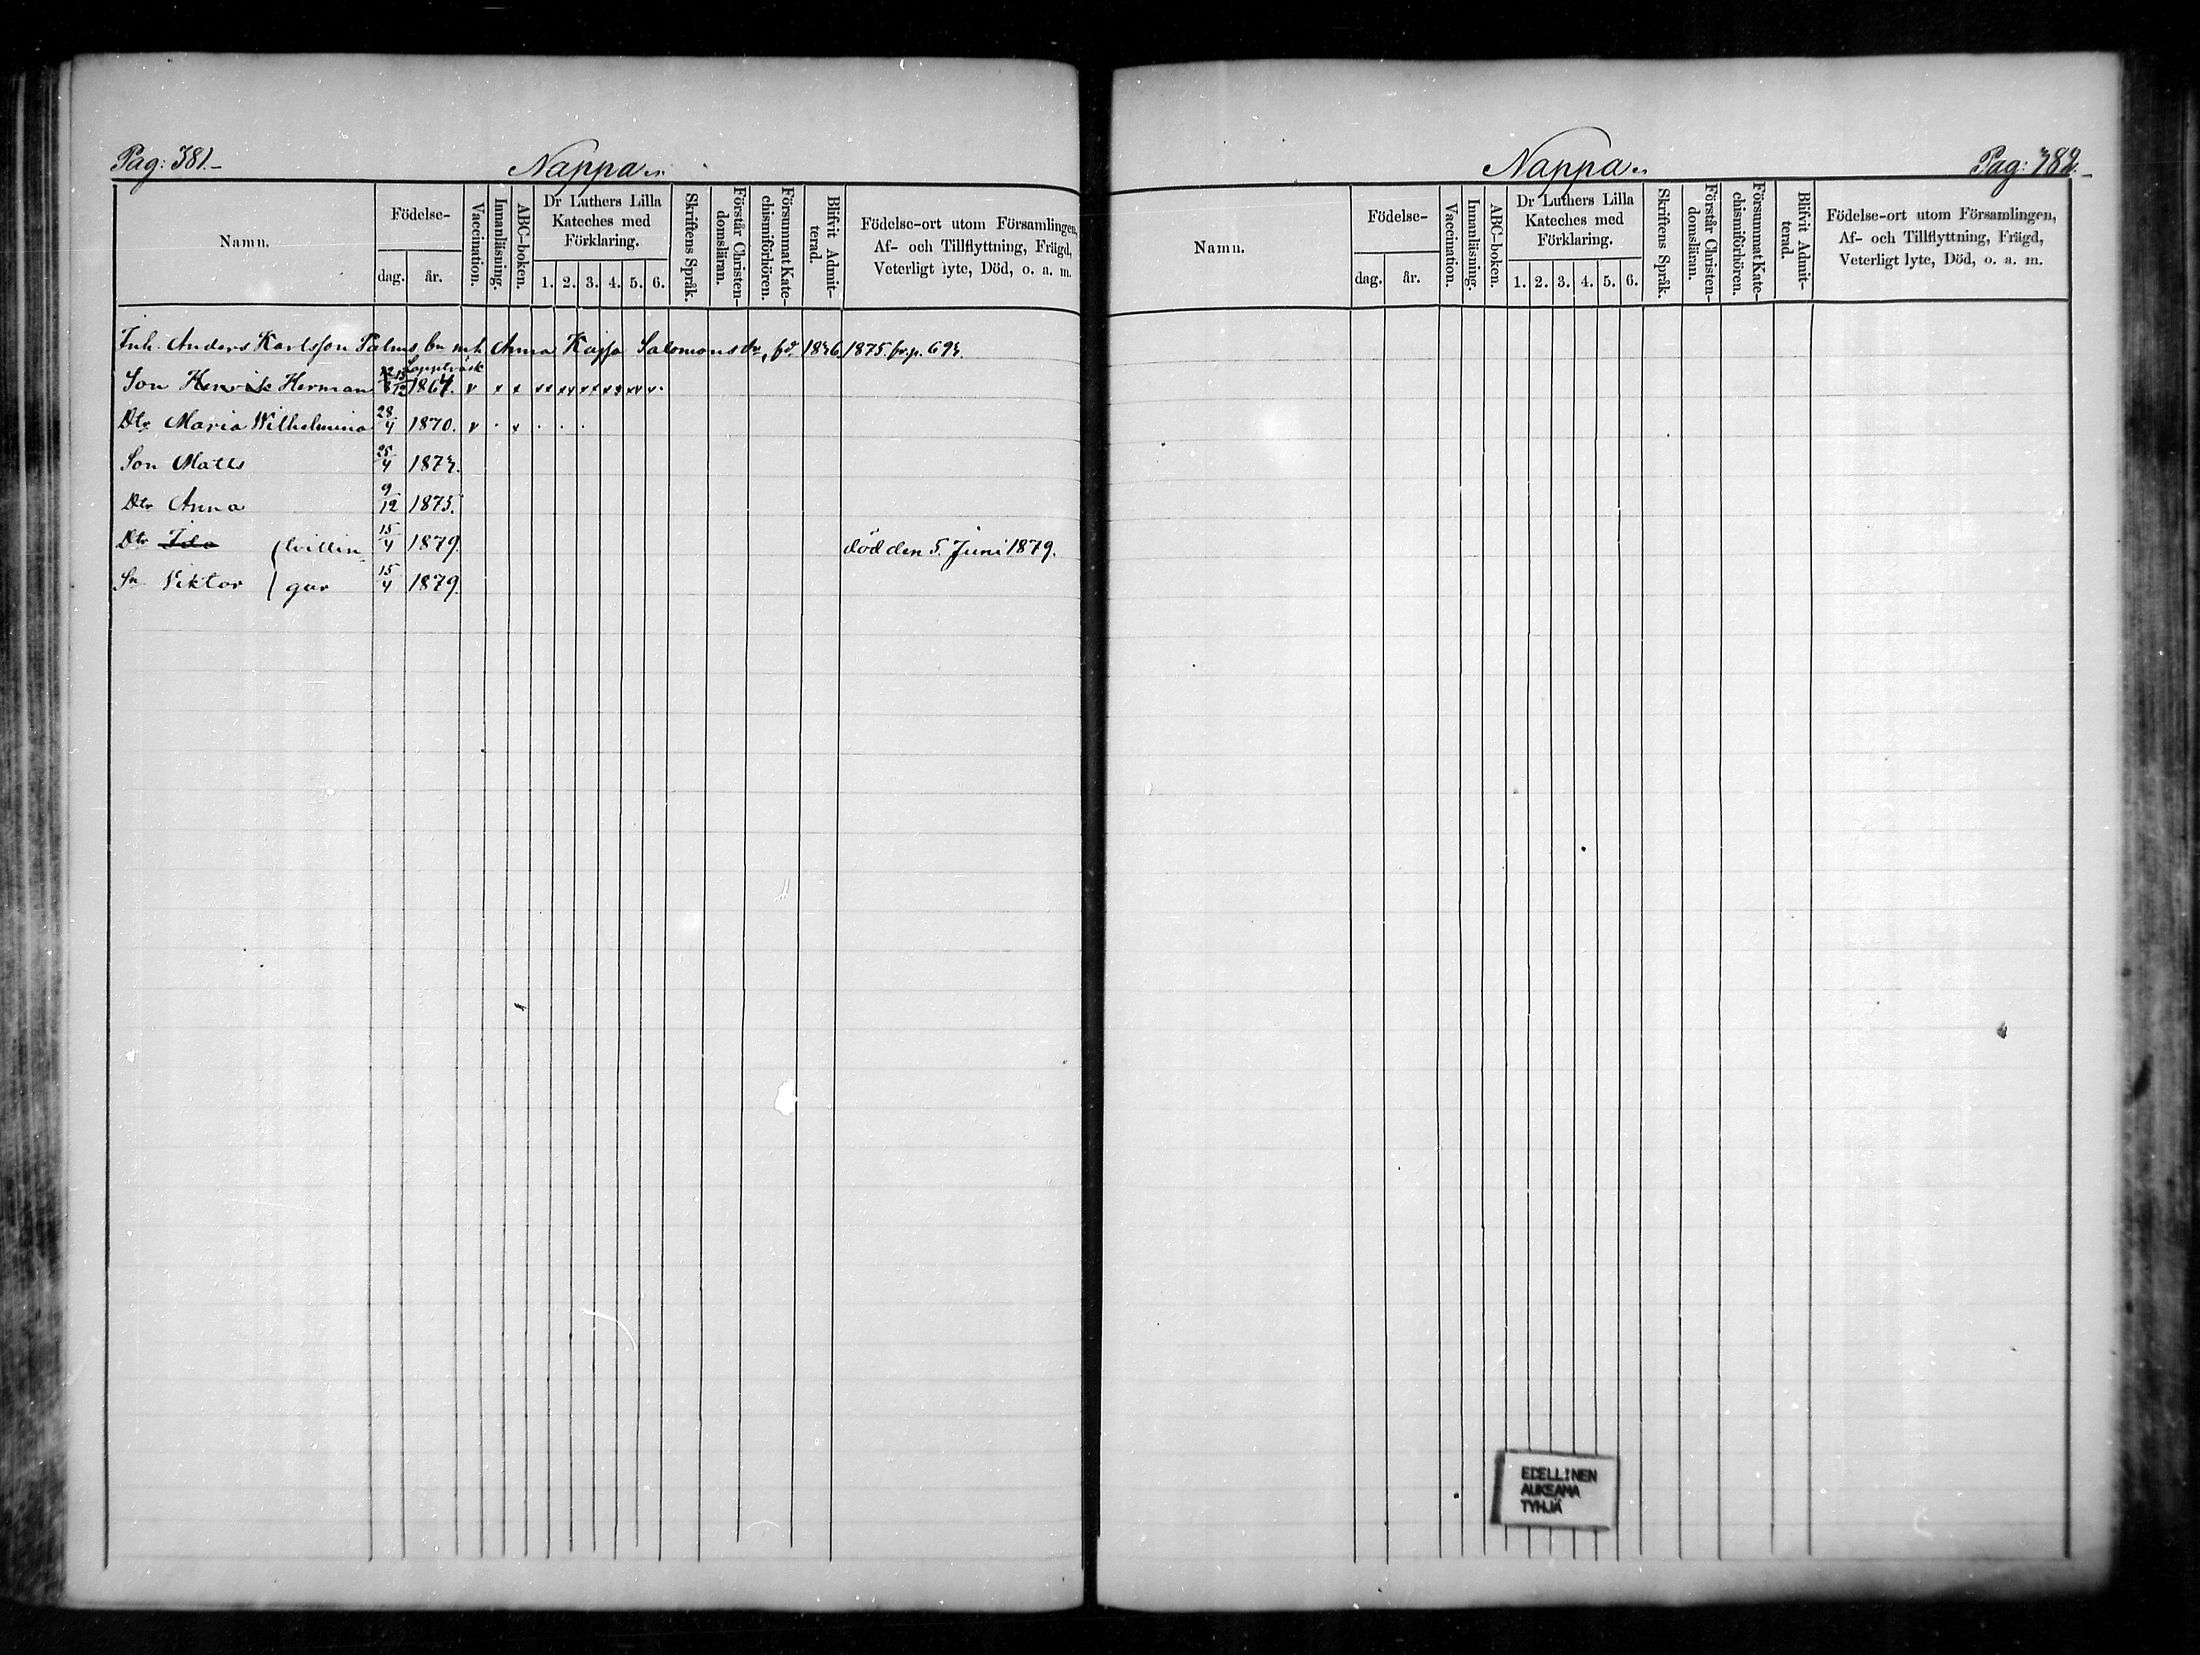 Pag: 381.
Nappa
Namn.
Födelse-
dag.
år.
Vaccination.
Innanläsning.
ABC-boken.
Dr Luthers Lilla
Kateches med
Förklaring.
1. 2. 3. 4. 5. 6.
Skriftens Språk.
Förstår Christen-
domsläran.
Försummat Kate-
chismiförhören.
Blifvit Admit-
terad.
Födelse-ort utom Församlingen,
Af- och Tillflyttning, Frägd,
Veterligt lyte, Död, o. a. m.
Inh. Anders Karlsson Palms Anna Kajsa Salomons dr, fd 1836, 1875. fr. p. 693.
Lappträsk
Son Henrik Herman 1864. v x x xx xx xx xx xx v.
Dtr Maria Wilhelmina 28/4 1870. v . x . . .
Son Matts 25/4 1873.
Dtr Anna 9/12 1875.
Dtr Ida (tvillin- 15/4 1879. död den 5. Juni 1879.
Sn Viktor ( gar 15/4 1879.
Nappa
Pag: 382.
Namn.
Födelse-
dag.
år.
Vaccination.
Innanläsning.
ABC-boken.
Dr Luthers Lilla
Kateches med
Förklaring.
1. 2. 3. 4. 5. 6.
Skriftens Språk.
Förstår Christen-
domsläran.
Försummat Kate-
chismiförhören.
Blifvit Admit-
terad.
Födelse-ort utom Församlingen,
Af- och Tillflyttning, Frägd,
Veterligt lyte, Död, o. a. m.
EDELLINEN
AUKEAMA
TYHJÄ